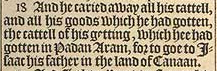 18 And he caried away all his cattell,
and all his goods which he had gotten,
the cattell of his getting, which hee had
gotten in Padan Aram, for to goe to I-
saac his father in the land of Canaan.